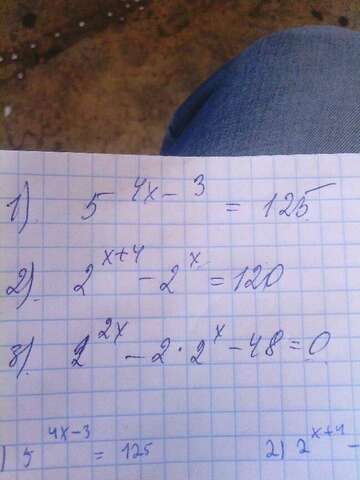 1) 5^{4x-3} = 125
2) 2^{x+4} - 2^{x} = 120
3) 2^{2x} - 2 · 2^{x} - 48 = 0
) 5^{4x-3} = 125 2) 2^{x+4} -